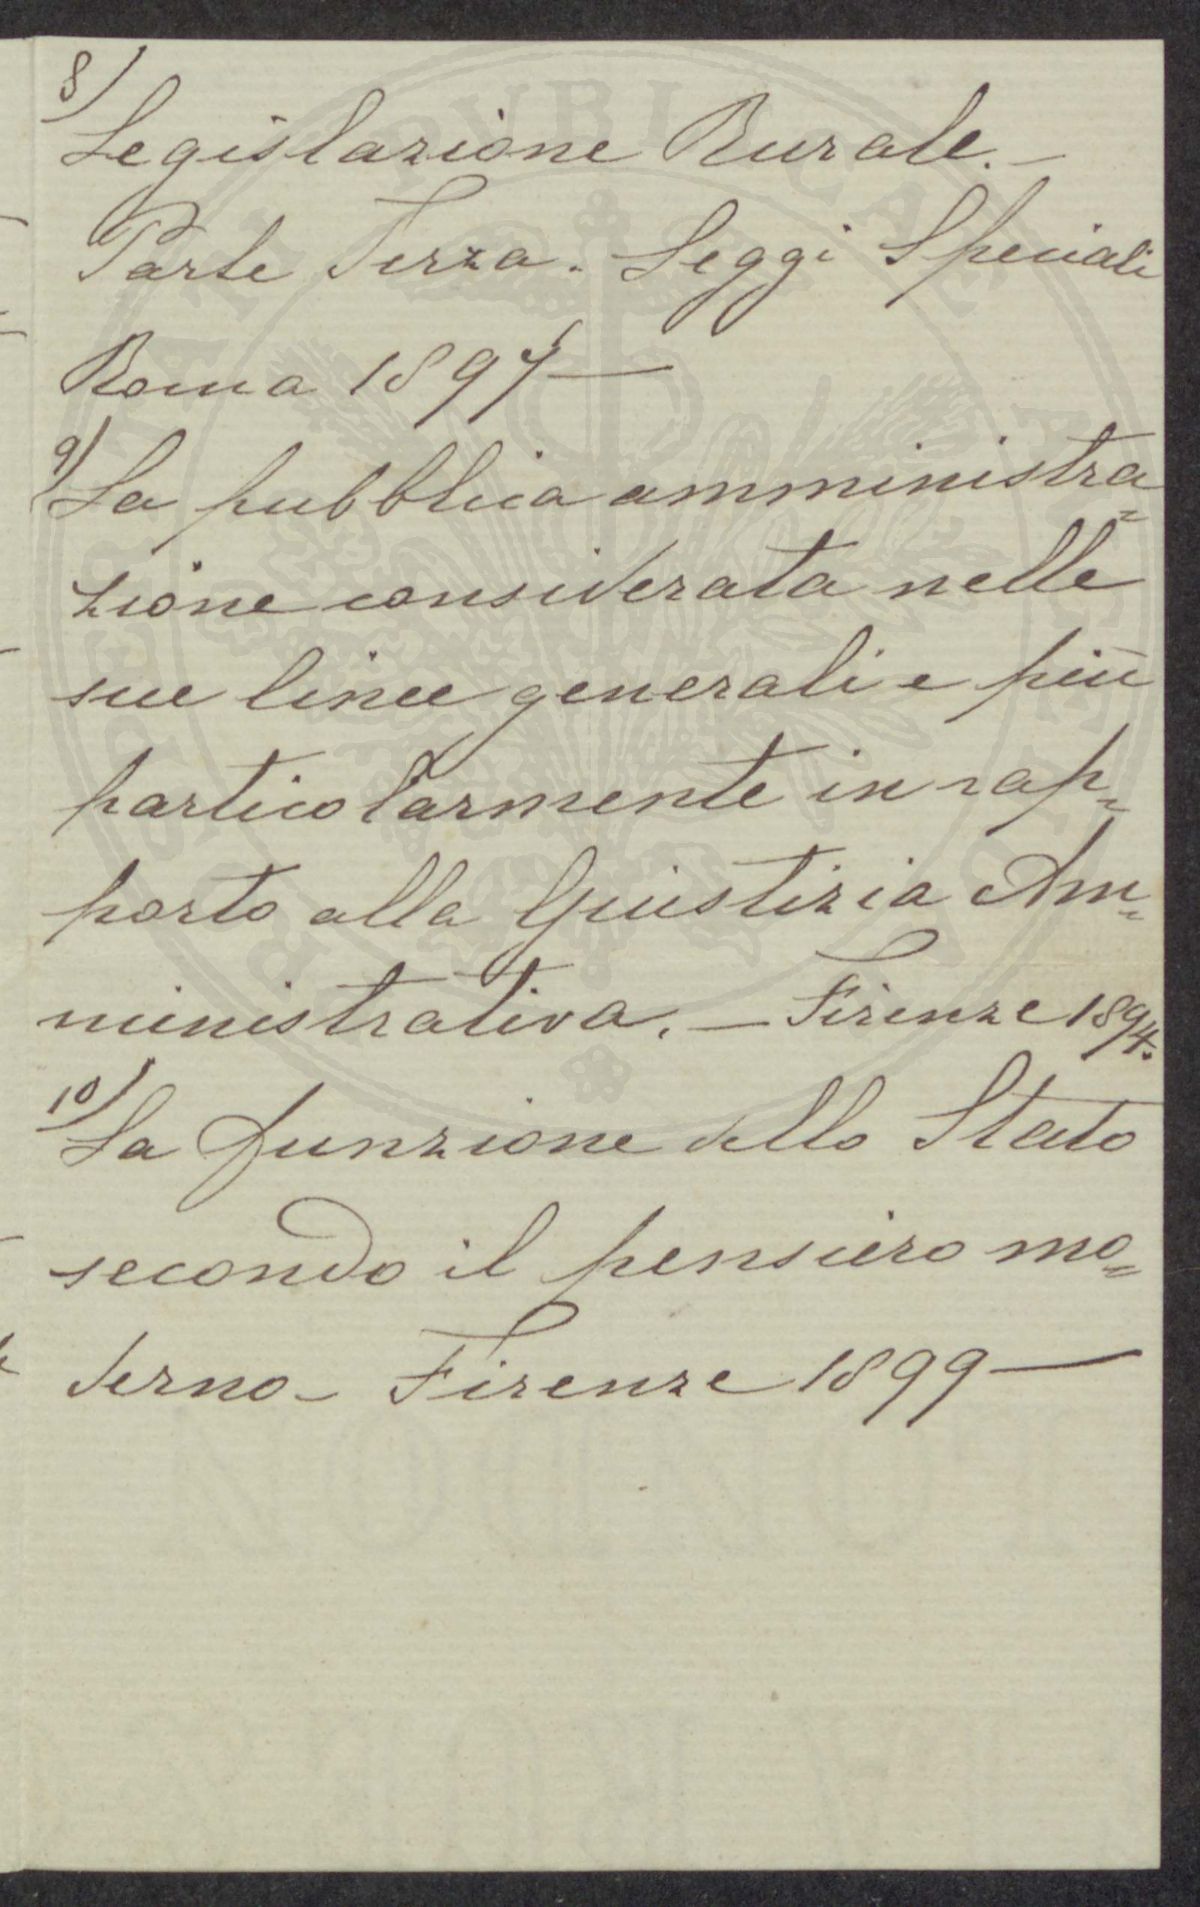 8)
Legislazione Rurale. —
Parte Terza. Leggi Speciali
Roma 1897 —
9)
La pubblica amministra=
zione considerata nelle
sue linee generali e più
particolarmente in rap=
porto alla Giustizia Am=
ministrativa. — Firenze 1894.
10)
La funzione dello Stato
secondo il pensiero mo=
derno — Firenze 1899 —